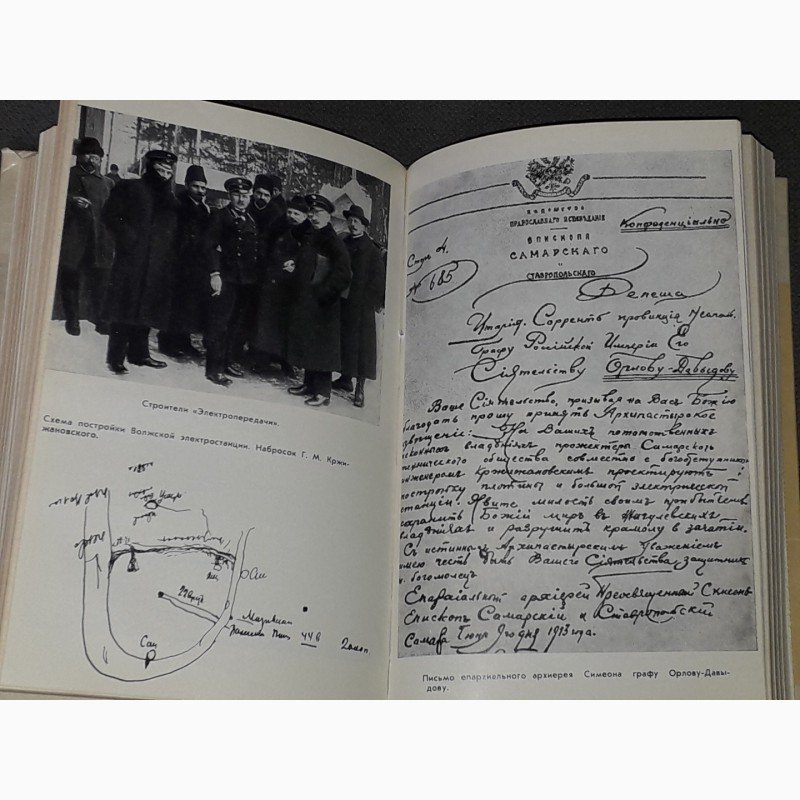 Строители «Электропередачи».
Схема постройки Волжской электростанции. Набросок Г. М. Кржи-
жановского.
Сам
44 в
ВЕДОМСТВО
ПРАВОСЛАВНАГО ИСПОВѢДАНІЯ
ЕПИСКОПА
САМАРСКАГО
и
СТАВРОПОЛЬСКАГО
Конфиденціально
№ 685
Депеша
Италія. Соррентъ провинція Неаполь.
Графу Россійской Имперіи Его
Сіятельству Орлову-Давыдову
Ваше Сіятельство, призывая на Васъ Божію
благодать прошу принять Архипастырское
извѣщеніе: На Вашихъ потомственныхъ
исконныхъ владѣніяхъ прожектеры Самарскаго
техническаго общества совместно съ богоотступникомъ
инженеромъ Кржижановскимъ проектируютъ
постройку плотины и большой электрической
станціи. Явите милость своимъ прибытіемъ
сохранить Божій миръ въ Жигулевскихъ
владѣніяхъ и разрушить крамолу въ зачатіи.
Съ истиннымъ Архипастырскимъ уваженіемъ
имѣю честь быть Вашего Сіятельства защитникъ
и богомолецъ
Епархіальный архіерей Преосвященный Симеонъ
Епископъ Самарскій и Ставропольскій
Самара Іюня 9 дня 1913 года.
Письмо епархиального архиерея Симеона графу Орлову-Давы-
дову.